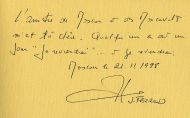 L'amitié de Moscou et des Moscovites
m'est très chère. Quelqu'un a dit un
jour "je reviendrai"... et je reviendrai.
Moscou le 21.11.1998